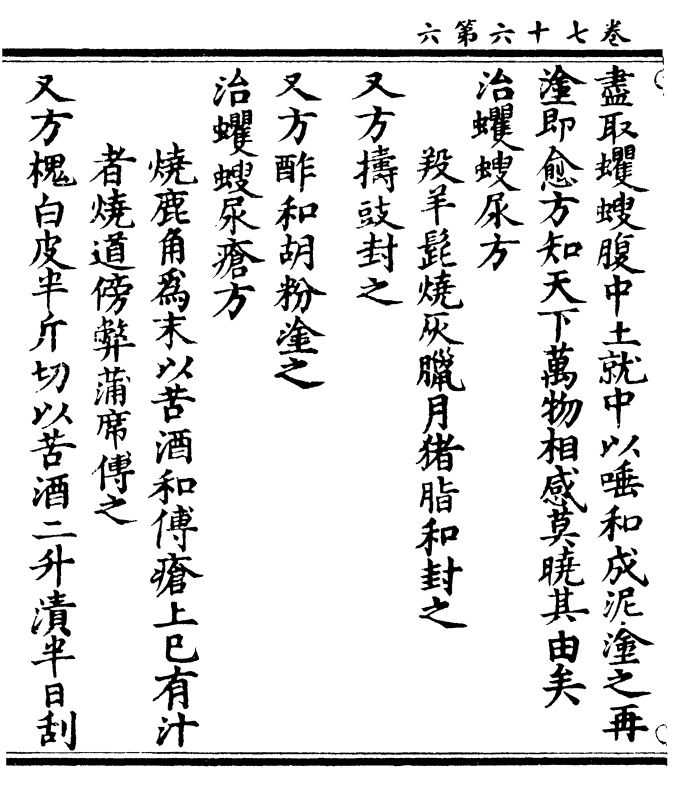 卷七十六第六
盡取蠷螋腹中土就中以唾和成泥塗之再
塗即愈方知天下萬物相感莫曉其由矣
治蠷螋尿方
羖羊髭燒灰臘月猪脂和封之
又方擣豉封之
又方酢和胡粉塗之
治蠷螋尿瘡方
燒鹿角為末以苦酒和傅瘡上已有汁
者燒道傍弊蒲席傅之
又方槐白皮半斤切以苦酒二升漬半日刮